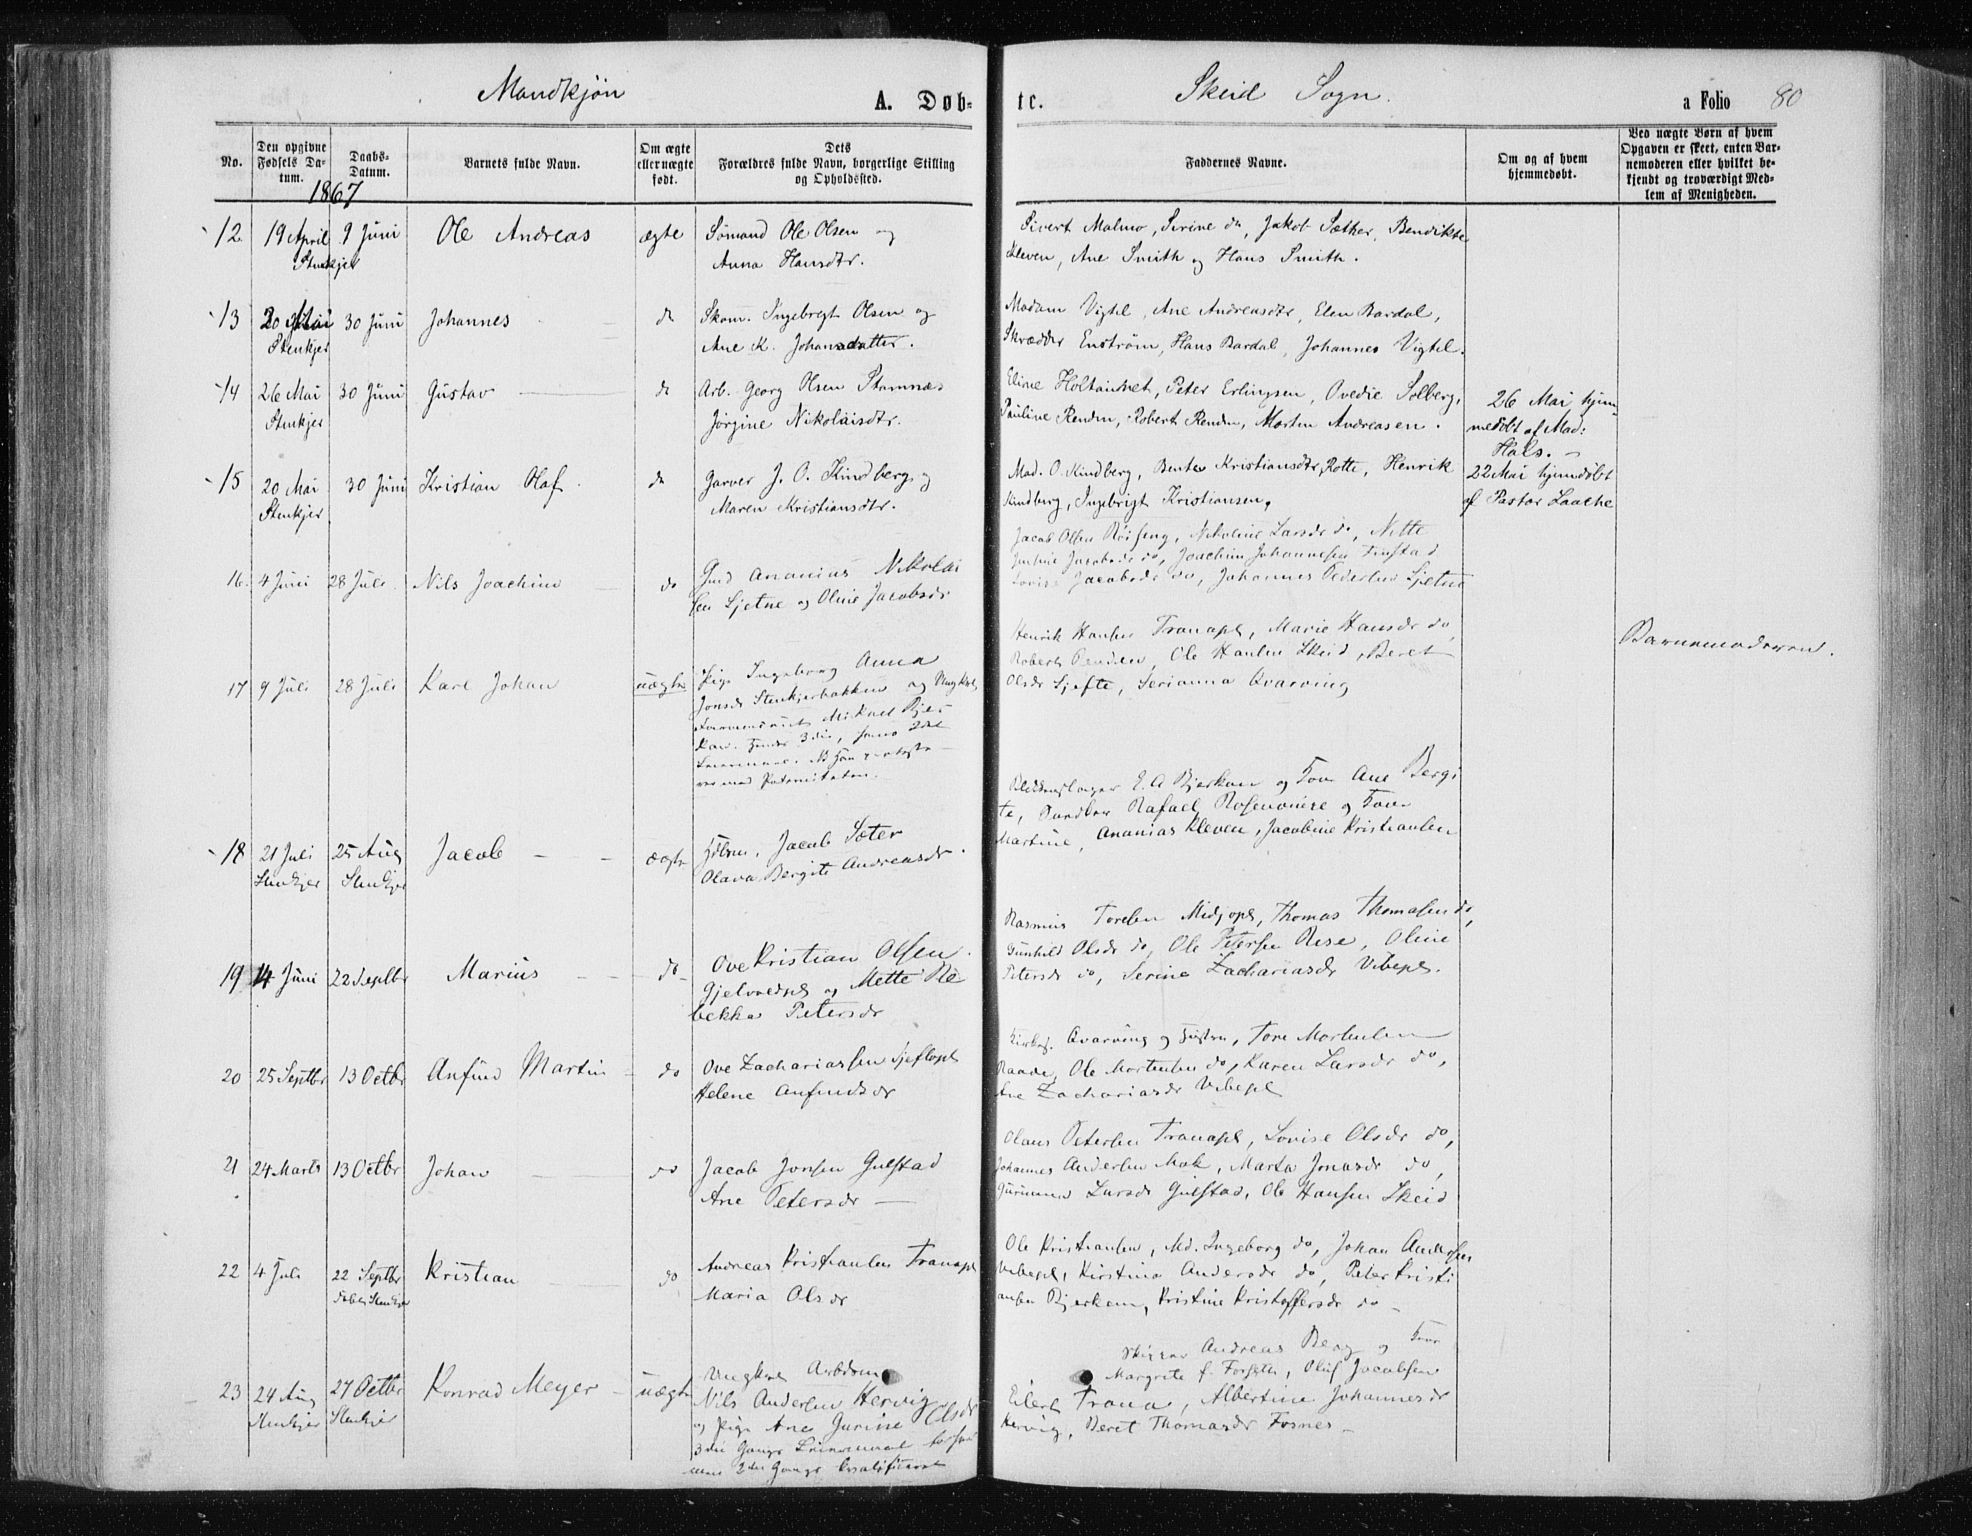 Mandkjøn
A. Døb-
te.
Skeid Sogn.
a Folio 80
No.
Den opgivne
Fødsels Da-
tum.
Daabs-
Datum.
Barnets fulde Navn.
Om ægte
eller uægte
født.
Dets
Forældres fulde Navn, borgerlige Stilling
og Opholdssted.
Faddernes Navne.
Om og af hvem
hjemmedøbt.
Ved uægte Børn af hvem
Opgaven er skeet, enten Bar-
nemoderen eller hvilket be-
kjendt og troværdigt Med-
lem af Menigheden.
1867
12. 19 April 9 Juni Ole Andreas ægte Sömand Ole Olsen og
Stenkjer
Anna Hansdtr.
Sivert Malmo, Serine do, Jakob Sæther, Bendikte
Kleven, Ane Smith og Hans Smith.
13 20 Mai 30 Juni Johannes do Skom. Ingebregt Olsen og
Stenkjer
Ane K. Johansdatter.
Madam Vigtel, Ane Andreasdtr, Elen Bardal,
Skrædder Enström, Hans Bardal, Johannes Vigtel.
14 26 Mai 30 Juni Gustav do Arb. Georg Olsen Stamnæs
Stenkjer
Jörgine Nikolaisdtr.
Eline Holtanket, Peter Erlingsen, Ovedie Solberg,
Pauline Rendm, Robert Rendm, Morten Andreasen.
26 Mai hjem-
medöbt af Mad:
Hals.
15 20 Mai 30 Juni Kristian Olaf do Garver J. O. Kindberg og
Stenkjer
Maren Kristiansdtr.
Mad. O. Kindberg, Bente Kristiansdtr, Rotte, Henrik
Kindberg, Ingebrigt Kristiansen,
22 Mai hjemdöbt
af Pastor Laache
16. 4 Juni 28 Juli Nils Joachim do Gmd Ananias Nikolai
sen Sjetne og Oline Jacobsdr
Jacob Olsen, Nikoline Larsdr do, Mette
Jacobsdr do, Joachim Johannesen Finstad
Lovise Jacobsdr do, Johannes Pedersen Sjetne
17 9 Juli 28 Juli Karl Johan uægte Pige Ingeborg Anna
Jonsdr Stenkjerbakken og Ungkarl
Mikael Bjer
kan. 3die, 2det
Leiermaal. NB Han proteste
rer mod Paterniteten.
Henrik Hansen Tranapl, Marie Hansdr do
Robert Rendm, Ole Hansen Skeid, Beret
Olsdr Sjefte, Serianna Qvarving
Barnemoderen.
18 21 Juli 25 Aug Jacob ægte Jacob Sæter
Stenkjer Stenkjer
Olava Bergite Andreasdr.
Blikkenslager E. A Bjerkan og Kone Ane Bergi
te, Rafael Rosenvinge og Kone
Martine, Ananias Kleven, Jacobine Kristiansen
19 14 Juni 22 Septbr Marius do Ove Kristian Olsen
Gjelvoldspl og Mette Re
bekka Petersdr
Rasmus Toresen Midjopl, Thomas Thomasen do,
Gunhild Olsdr do, Ole Petersen Rise, Oline
Petersdr do, Serine Zachariasdr Vibepl.
20 25 Septbr 13 Octbr Anfind Martin do Ove Zachariassen Sjeftepl
Helene Anfindsdr
Kirkes. Qvarving og Hustru, Tore Mortensen
Raade, Ole Mortensen do, Karen Larsdr do,
Ane Zachariasdr Vibepl
21 24 Marts 13 Octbr Johan do Jacob Jonsen Gulstad
Ane Petersdr
Olaus Petersen Tranapl, Lovise Olsdr do,
Johannes Andersen Mok, Marta Jonasdr do,
Gurianna Larsdr Gulstad, Ole Hansen Skeid
22 4 Juli 22 Septbr Kristian do Andreas Kristiansen Tranapl
döbt i Stenkjer
Maria Olsdr
Ole Kristiansen, Md. Ingeborg do, Johan Andersen
Vibepl, Kirstina Andersdr do, Peter Kristi
ansen Bjerkem, Kristine Kristoffersdr do
23 24 Aug 27 Octbr Konrad Meyer uægte Ungkarl Arbdsm
Stenkjer Stenkjer
Nils Andersen Hervig
og Pige Ane Gurine Olsdr
3die Gangs Leiermaal for
2den Gangs kvalificeret
Skipper Andreas Berg og Kone
Margrete f. Forseth, Oluf Jacobsen
Eilert Trana, Albertine Johannesdr
Hervig, Beret Thomasdr Fosnes